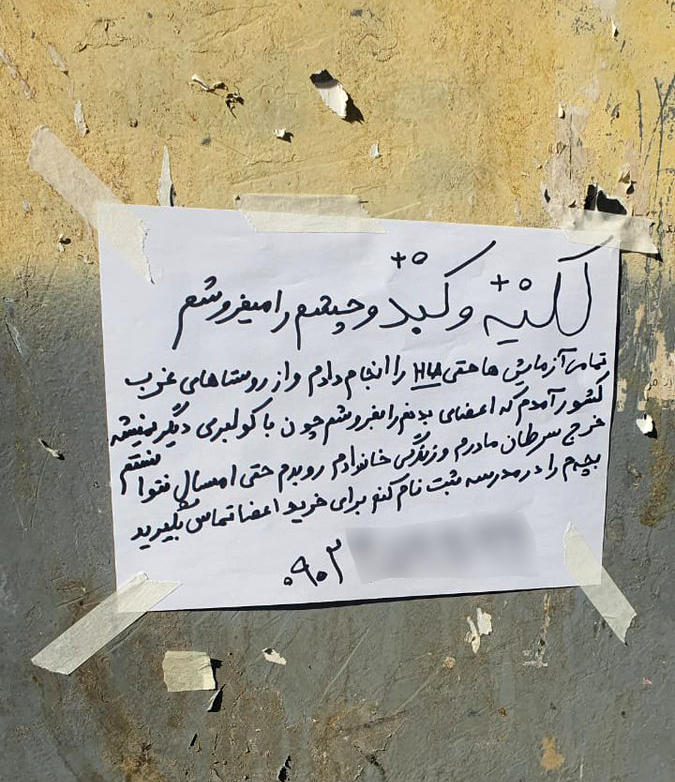 کلیه O+ و کبد O+ و چشم را میفروشم
تمامی آزمایش ها حتی HLA را انجام دادم و از روستاهای غرب
کشور آمدم که اعضای بدنم را بفروشم چون با کولبری دیگر نمیشه
خرج سرطان مادرم و زندگی خانوادم رو بدم حتی امسال نتوانستم
بچم را در مدرسه ثبت نام کنم برای خرید اعضا تماس بگیرید
۰۹۰۳